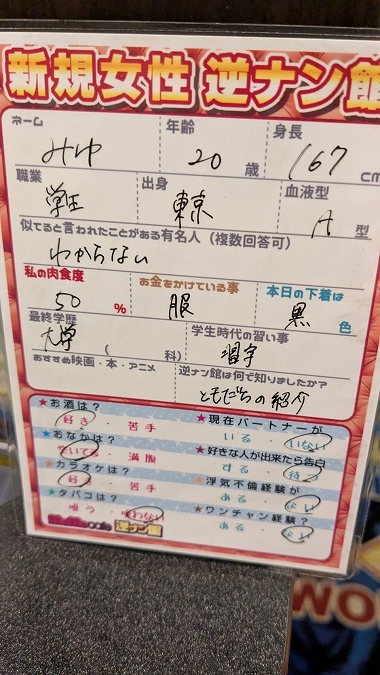 新規女性 逆ナン館
ネーム 年齢 身長
みゆ 20 歳 167 cm
職業 出身 血液型
学生 東京 A 型
似てると言われたことがある有名人(複数回答可)
わからない
私の肉食度 お金をかけている事 本日の下着は
50 % 服 黒 色
最終学歴 学生時代の習い事
大学 ( 科) 習字
おすすめ映画・本・アニメ 逆ナン館は何で知りましたか?
ともだちの紹介
★お酒は? ★現在パートナーが
好き・苦手 いる・いない
★おなかは? ★好きな人が出来たら告白
空いてる・満腹 する・待つ
★カラオケは? ★浮気不倫経験が
好き・苦手 ある・ない
★タバコは? ★ワンチャン経験?
吸う・吸わない ある・ない
逆ナン館
WO